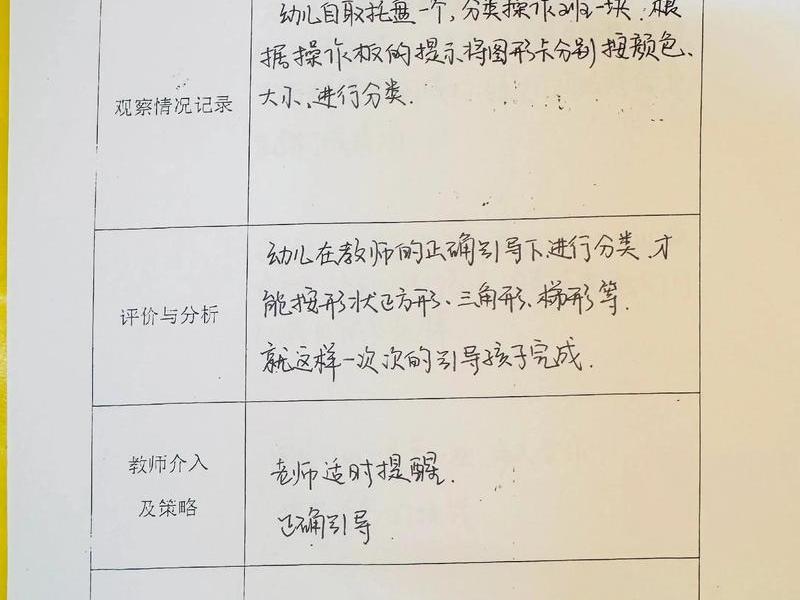 幼儿自取托盘一个,分类操作板一块.根
据操作板的提示将图形卡分别按颜色、
大小、进行分类.
观察情况记录
幼儿在教师的正确引导下进行分类.才
能按形状正方形、三角形、梯形等.
就这样一次次的引导孩子完成.
评价与分析
教师介入
及策略
老师适时提醒.
正确引导